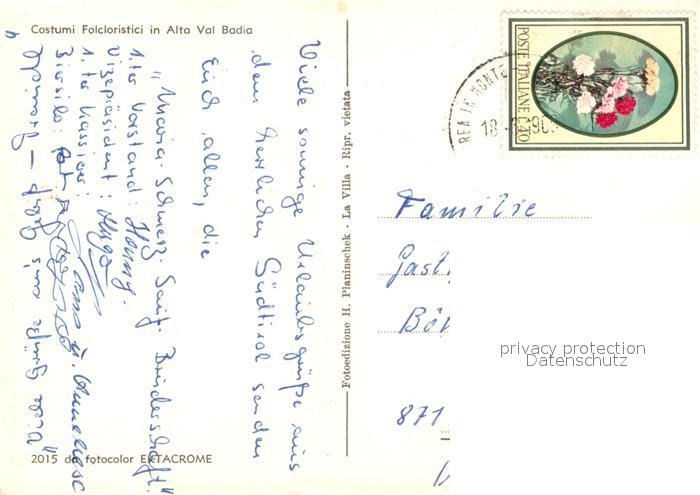 Costumi Folcloristici in Alta Val Badia
Viele sonnige Urlaubsgrüße aus
dem herrlichen Südtirol senden
Euch allen, die
"Maria Schmerz. Sauf. Bruderschaft."
1. ter Vorstand: Hanny.
Vizepräsident: Hugo
1. ter Kassier:
Beisitz:
u. Anneliese
Viele Grüße aus
2015 da fotocolor EKTACROME
Fotoedizione H. Planinschek - La Villa - Ripr. vietata
POSTE ITALIANE L. 40
REA IN MONTE
18
Familie
Gast
Böt
871
privacy protection
Datenschutz